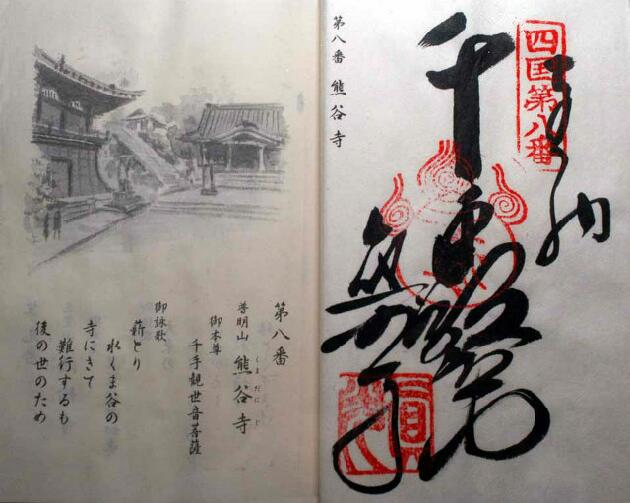 四国第八番
奉納
第八番 熊谷寺
第八番
普明山 熊谷寺
くまだにじ
御本尊
千手観世音菩薩
御詠歌
薪とり
水くま谷の
寺にきて
難行するも
後の世のため